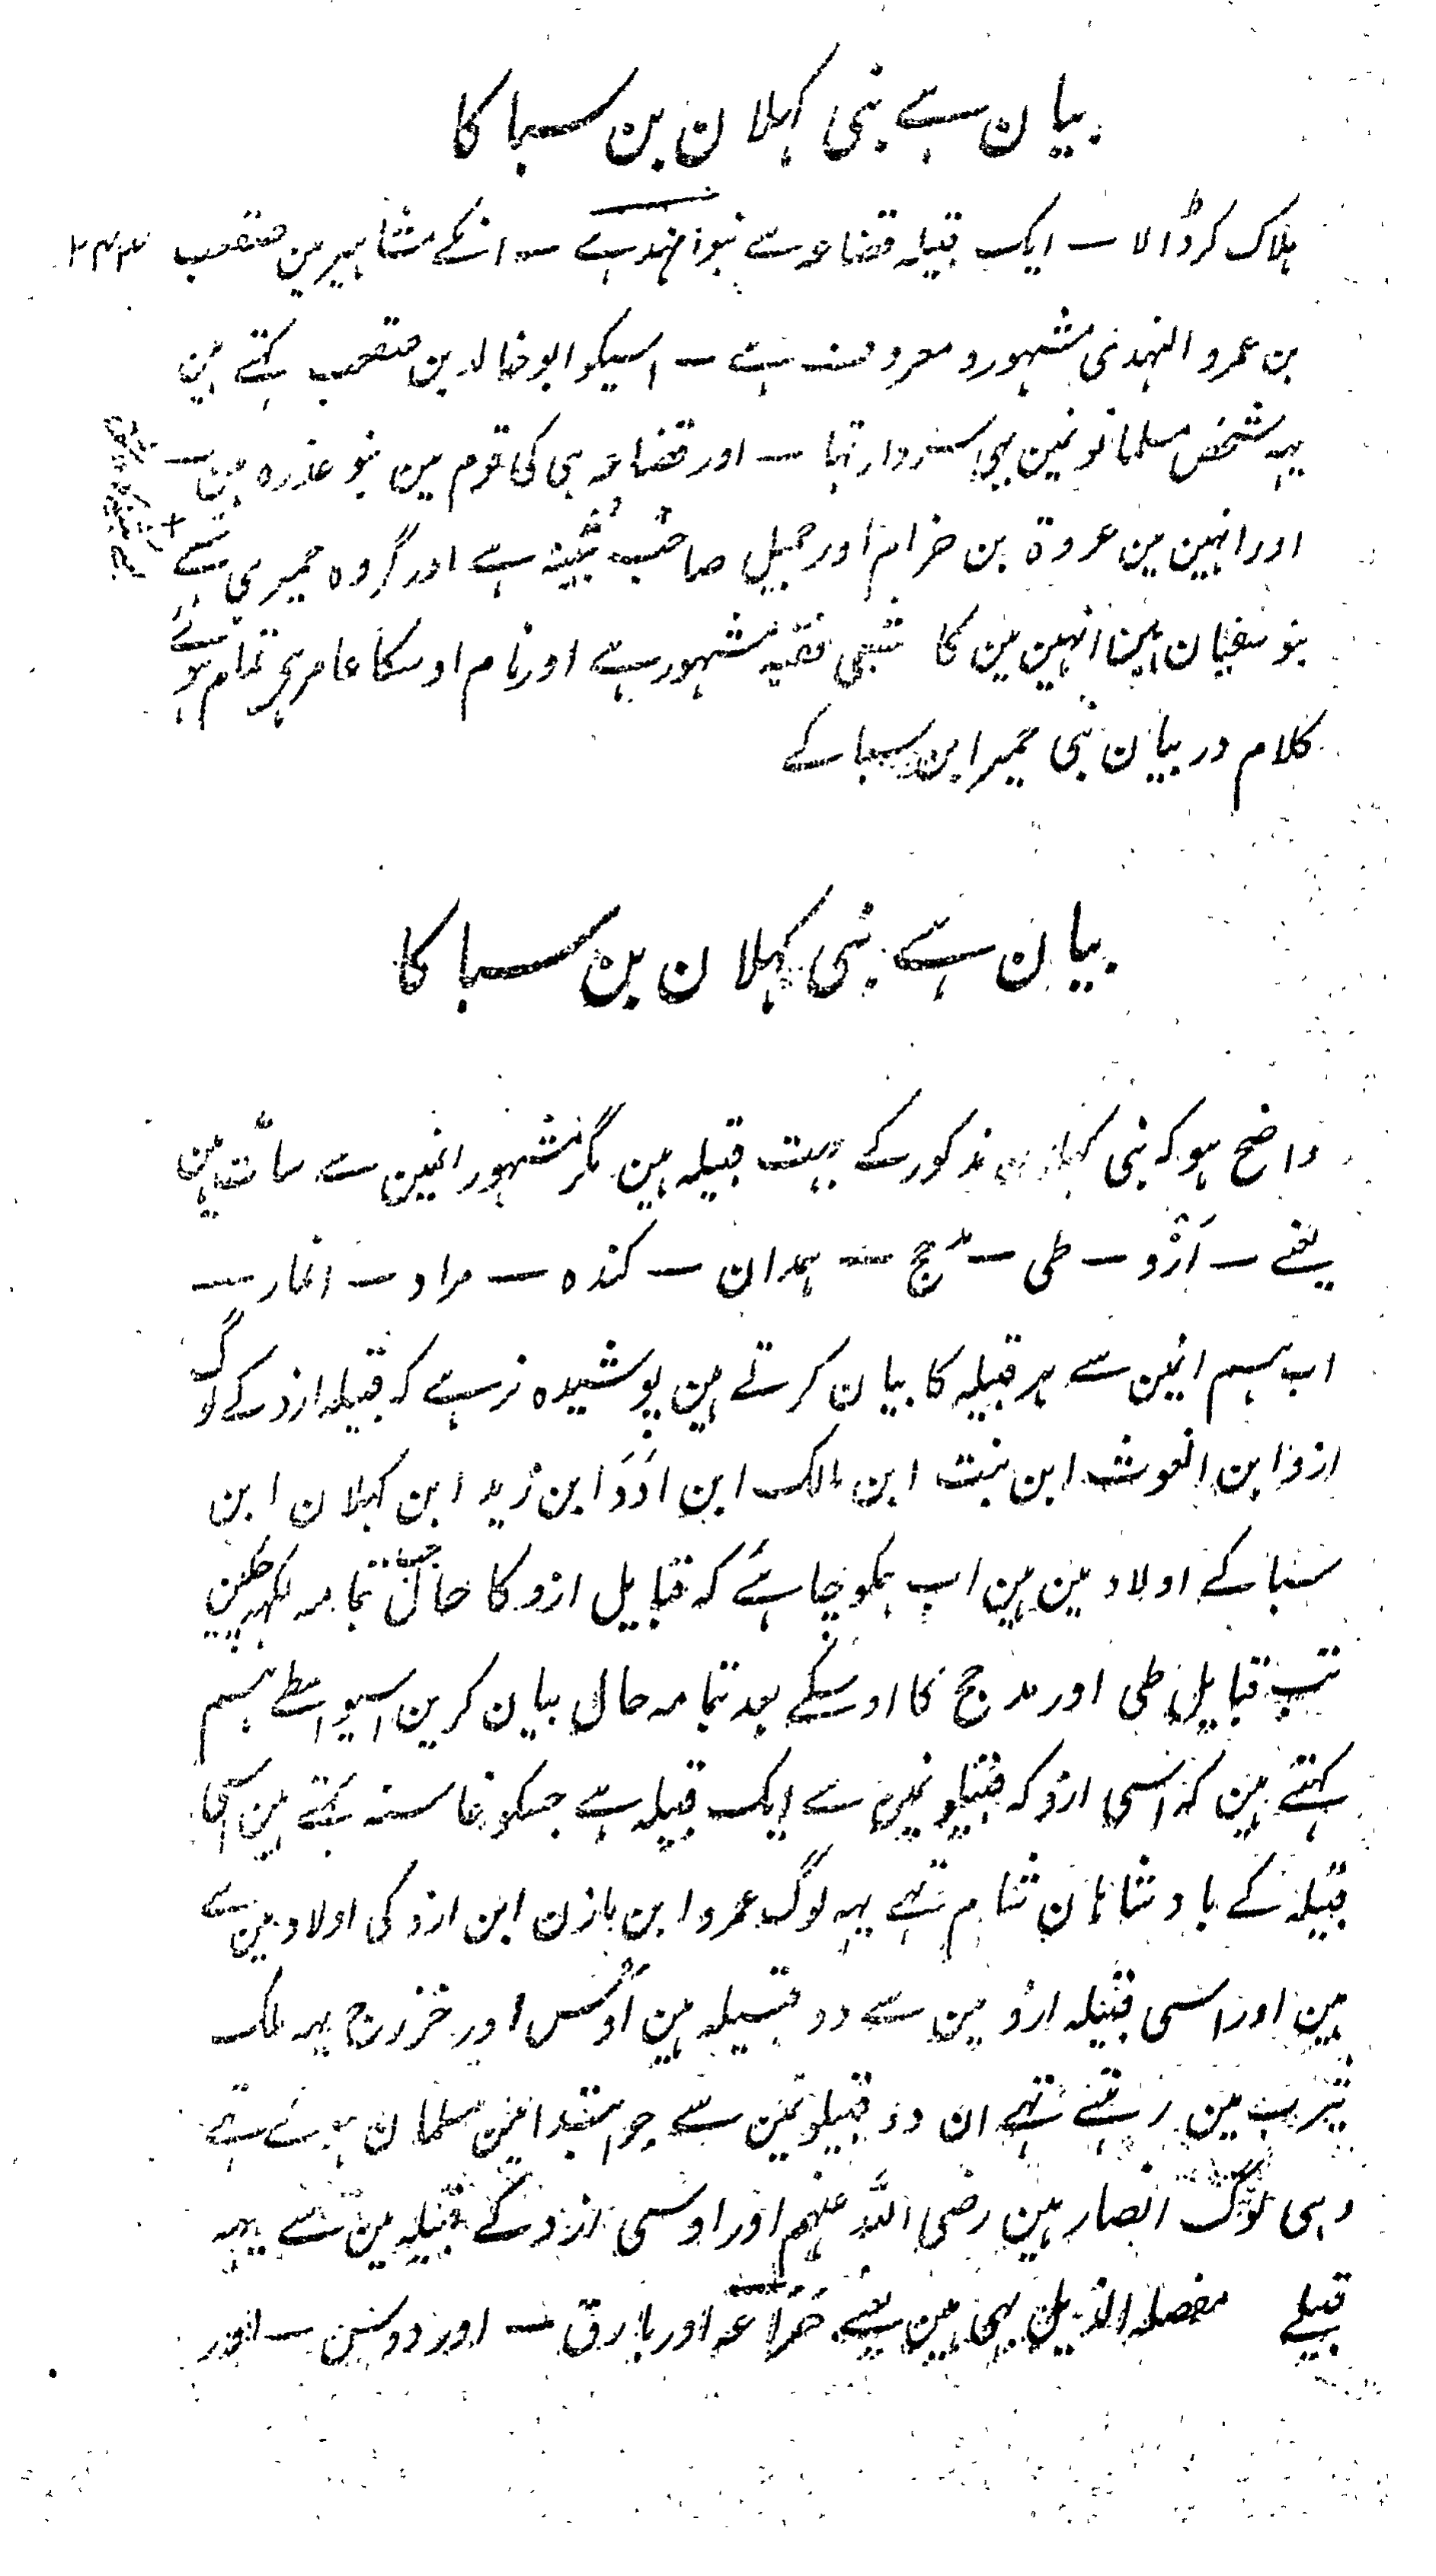 بیان ہے بنی کہلان بن سبا کا
ہلاک کر ڈالا ــ ایک قبیلہ قضاعہ سے بنو نہد ہے ــ انکے مشاہیر مین صقعب ۲۴۳
بن عمرو النہدی مشہور و معروف ہے ــ اسیکو ابو خالد بن صقعب کہتے ہین
یہہ شخص مسلمانونمین بھی سردار تہا ــ اور قضاعہ ہی کی قوم مین بنو عذرہ ہین ــ
اور انہین مین عروۃ بن خزام اور جمیل صاحب بثینہ ہے اور گروہ حمیری سے
بنو سفیان ہین انہین مین کا شعبی فقیہ مشہور ہے اور نام اوسکا عامر ہے تمام ہوئے
کلام در بیان بنی حمیر ابن سبا کے
بیان ہے بنی کہلان بن سبا کا
واضح ہو کہ بنی کہلان مذکور کے بہت قبیلہ ہین مگر مشہور انمین سے سات ہین
یعنے ــ اَزْد ــ طی ــ مذحج ــ ہمدان ــ کندہ ــ مراد ــ انمار ــ
اب ہم انمین سے ہر قبیلہ کا بیان کرتے ہین پوشیدہ نرہے کہ قبیلہ ازد کے لوگ
ازد ابن الغوث ابن نبت ابن مالک ابن اُدَدَ ابن زید ابن کہلان ابن
سبا کے اولاد مین ہین اب ہمکو چاہئے کہ قبایل ازد کا حال جب تمامہ لکہہ چکین
تب قبایل طی اور مذحج کا اوسکے بعد تمامہ حال بیان کرین اسیواسطے ہم
کہتے ہین کہ اسی ازد کہ قبیلونمین سے ایک قبیلہ ہے جسکو غاسنہ کہتے ہین اسی
قبیلہ کے بادشاہان شام تہے یہہ لوگ عمرو ابن مازن ابن ازد کی اولاد مین سے
ہین اور اسی قبیلہ ازد مین سے دو قبیلہ ہین اَوْس اور خزرج یہہ ملک
یثرب مین رہتے تہے ان دو قبیلونمین سے جو ابتدا مین مسلمان ہوئے تہے
وہی لوگ انصار ہین رضی اللہ عنہم اور اوسی ازد کے قبیلہ مین سے یہہ
قبیلے مفصلہ الذیل بہی ہین یعنے خزاعہ اور بارق ــ اور دوس ــ اور